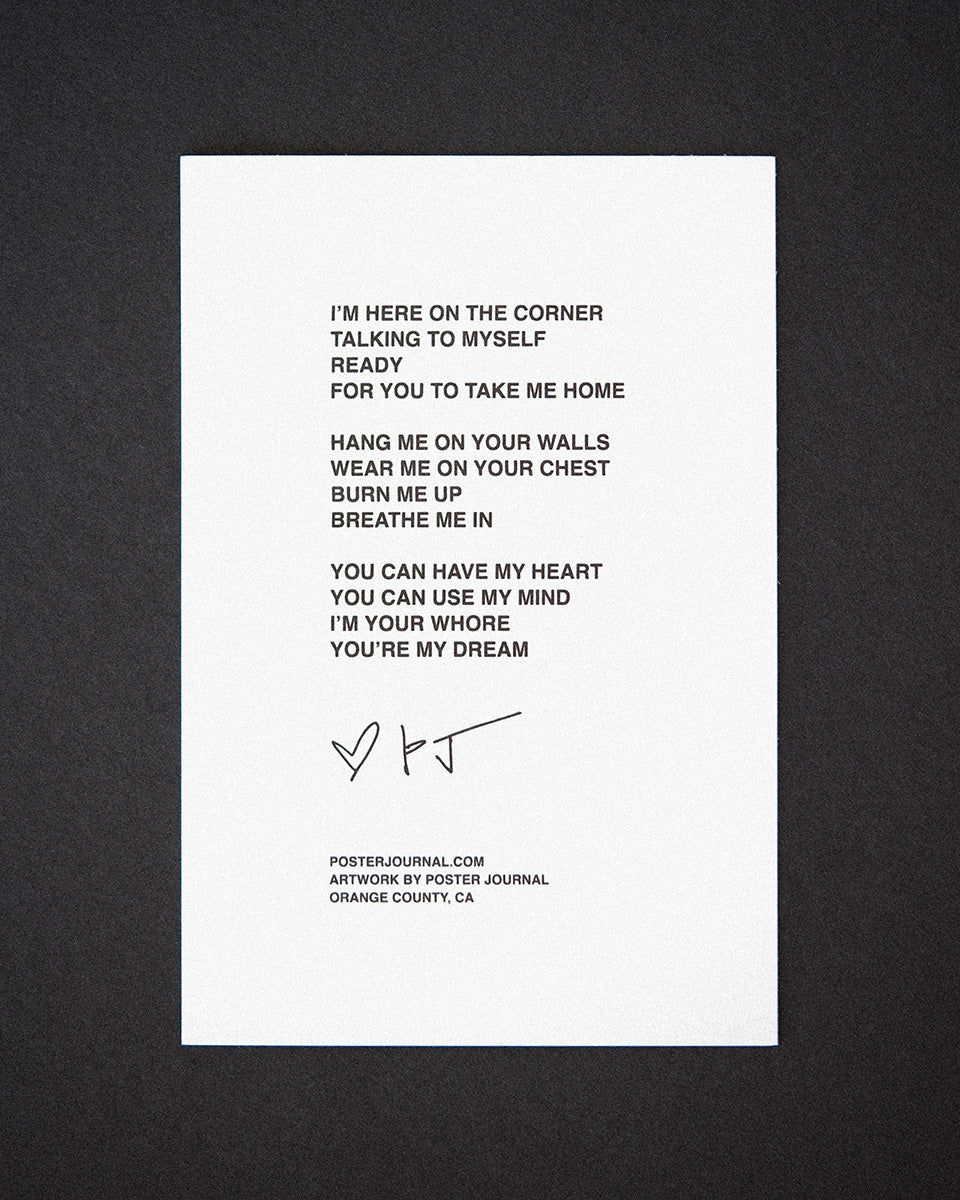 I'M HERE ON THE CORNER
TALKING TO MYSELF
READY
FOR YOU TO TAKE ME HOME
HANG ME ON YOUR WALLS
WEAR ME ON YOUR CHEST
BURN ME UP
BREATHE ME IN
YOU CAN HAVE MY HEART
YOU CAN USE MY MIND
I'M YOUR WHORE
YOU'RE MY DREAM
PJ
POSTERJOURNAL.COM
ARTWORK BY POSTER JOURNAL
ORANGE COUNTY, CA